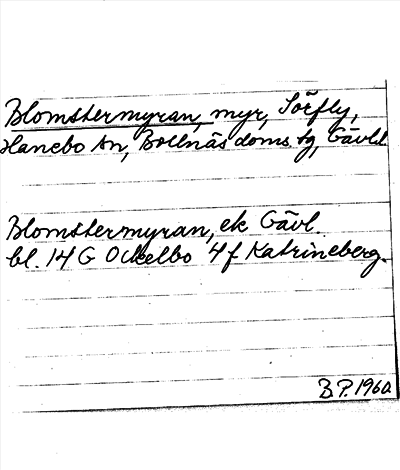 Blomstermyran, myr, Sörfly,
Hanebo sn, Bollnäs doms. tg, Gävl.l.
Blomstermyran, ek Gävl.
bl. 14 G Ockelbo 4 f Katrineberg.
B.P. 1960.